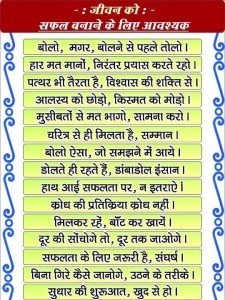 - : जीवन को : -
सफल बनाने के लिए आवश्यक
बोलो, मगर, बोलने से पहले तोलो ।
हार मत मानों, निरंतर प्रयास करते रहो ।
पत्थर भी तैरता है, विश्वास की शक्ति से ।
आलस्य को छोड़ो, किस्मत को मोड़ो ।
मुसीबतों से मत भागो, सामना करो ।
चरित्र से ही मिलता है, सम्मान ।
बोलो ऐसा, जो समझने में आये ।
डोलते ही रहते हैं, डांबाडोल इंसान ।
हाथ आई सफलता पर, न इतराऐं ।
क्रोध की प्रतिक्रिया क्रोध नहीं ।
मिलकर रहें, बाँट कर खायें ।
दूर की सोंचोगे तो, दूर तक जाओगे ।
सफलता के लिए जरूरी है, संघर्ष ।
बिना गिरे कैसे जानोगे, उठने के तरीके ।
सुधार की शुरूआत, खुद से हो ।